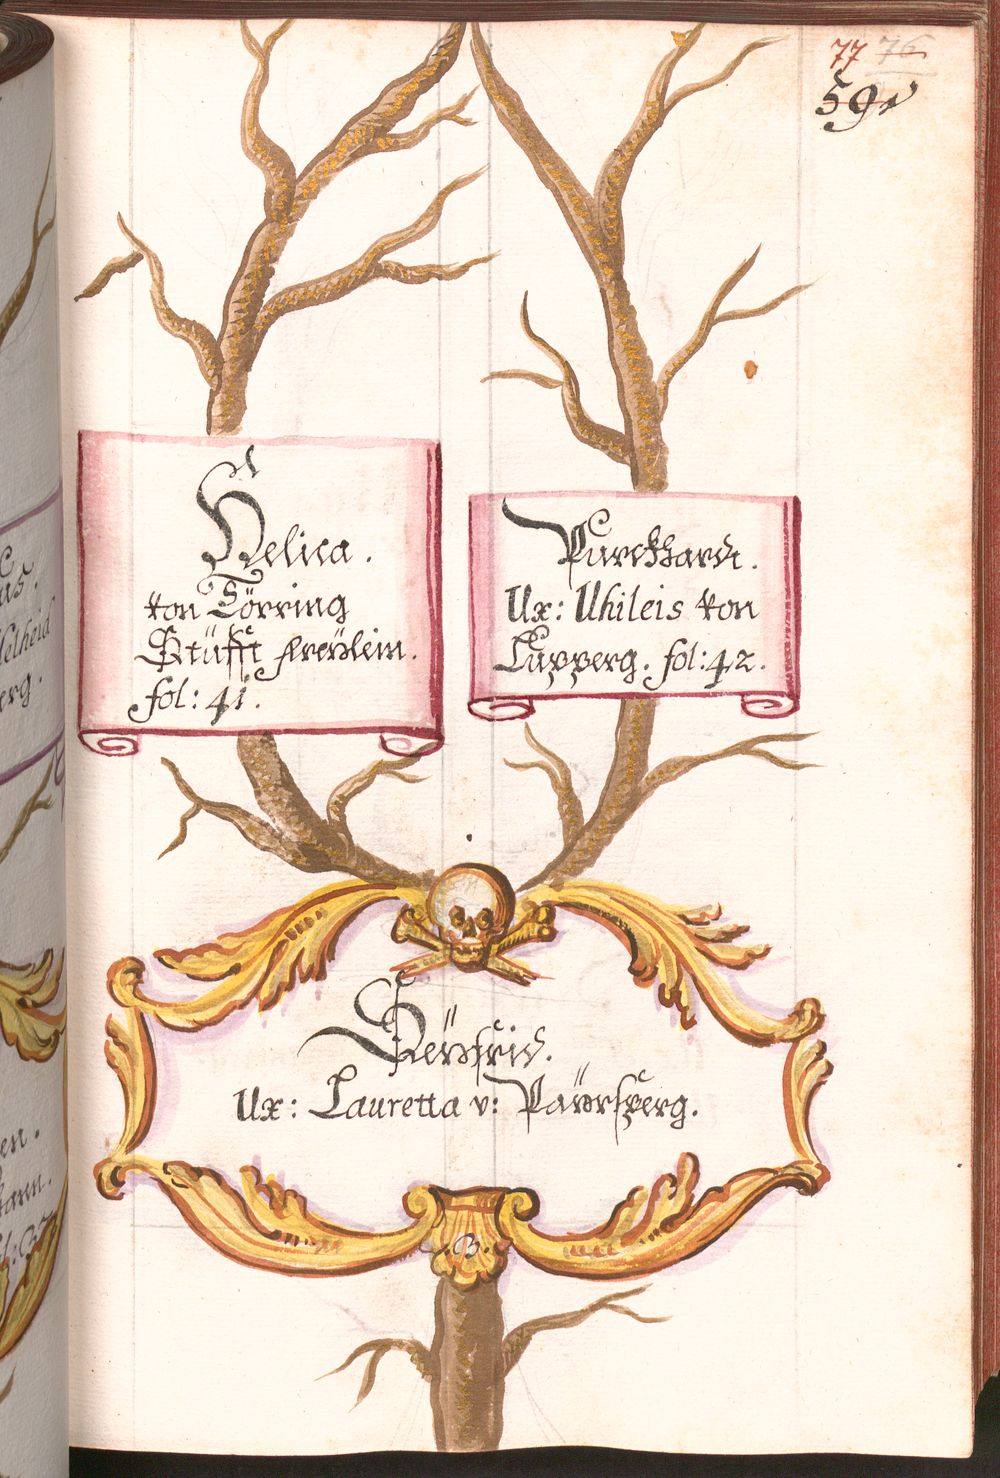 77 76
591
Helica.
von Törring
Stüfft freülein.
fol: 41.
Purckhardt.
Ux: Uhileis von
Lupperg. fol: 42.
Seÿfrid.
Ux: Lauretta v: Paÿrsperg.
.3.